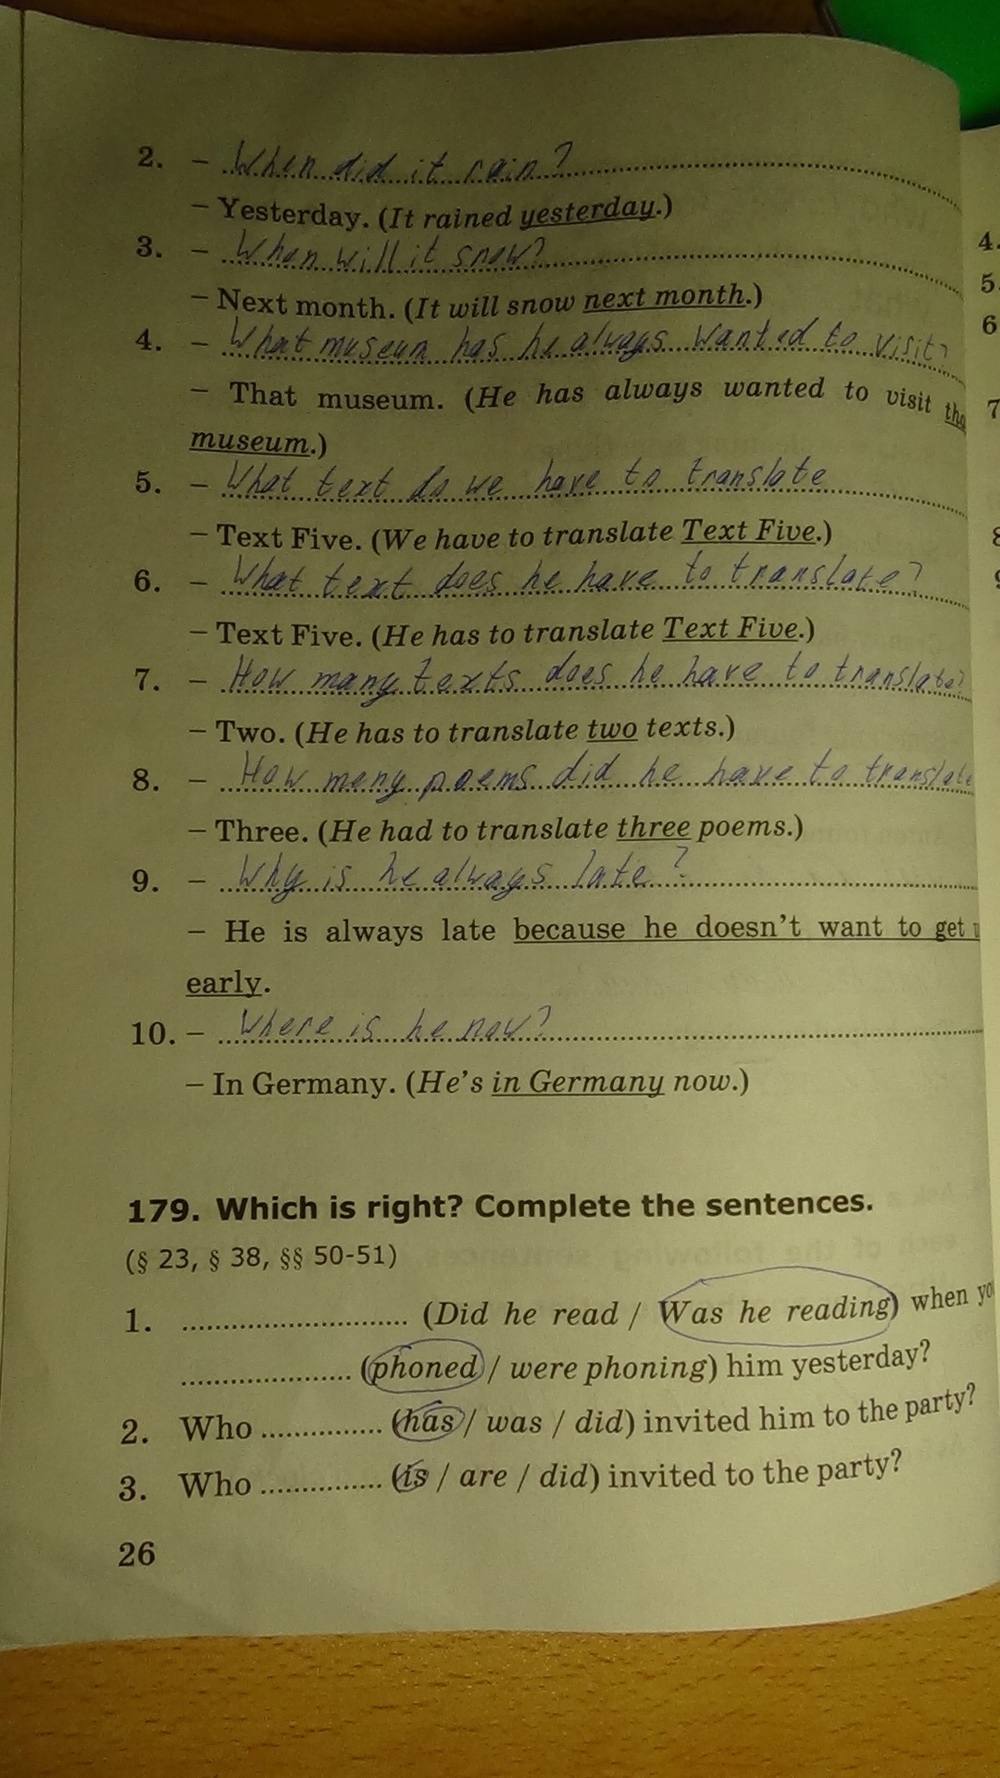 2. – When did it rain?
– Yesterday. (It rained yesterday.)
3. – When will it snow?
– Next month. (It will snow next month.)
4. – What museum has he always wanted to visit?
– That museum. (He has always wanted to visit
museum.)
5. – What text do we have to translate
– Text Five. (We have to translate Text Five.)
6. – What text does he have to translate?
– Text Five. (He has to translate Text Five.)
7. – How many texts does he have to translate?
– Two. (He has to translate two texts.)
8. – How meny poems did he have to translate
– Three. (He had to translate three poems.)
9. – Why is he always late?
– He is always late because he doesn't want to get
early.
10. – Where is he now?
– In Germany. (He's in Germany now.)
179. Which is right? Complete the sentences.
(§ 23, § 38, §§ 50-51)
1. .......................... (Did he read / Was he reading) when
.................... (phoned / were phoning) him yesterday?
2. Who .............. (has / was / did) invited him to the party?
3. Who .............. (is / are / did) invited to the party?
26
4.
5.
6
7